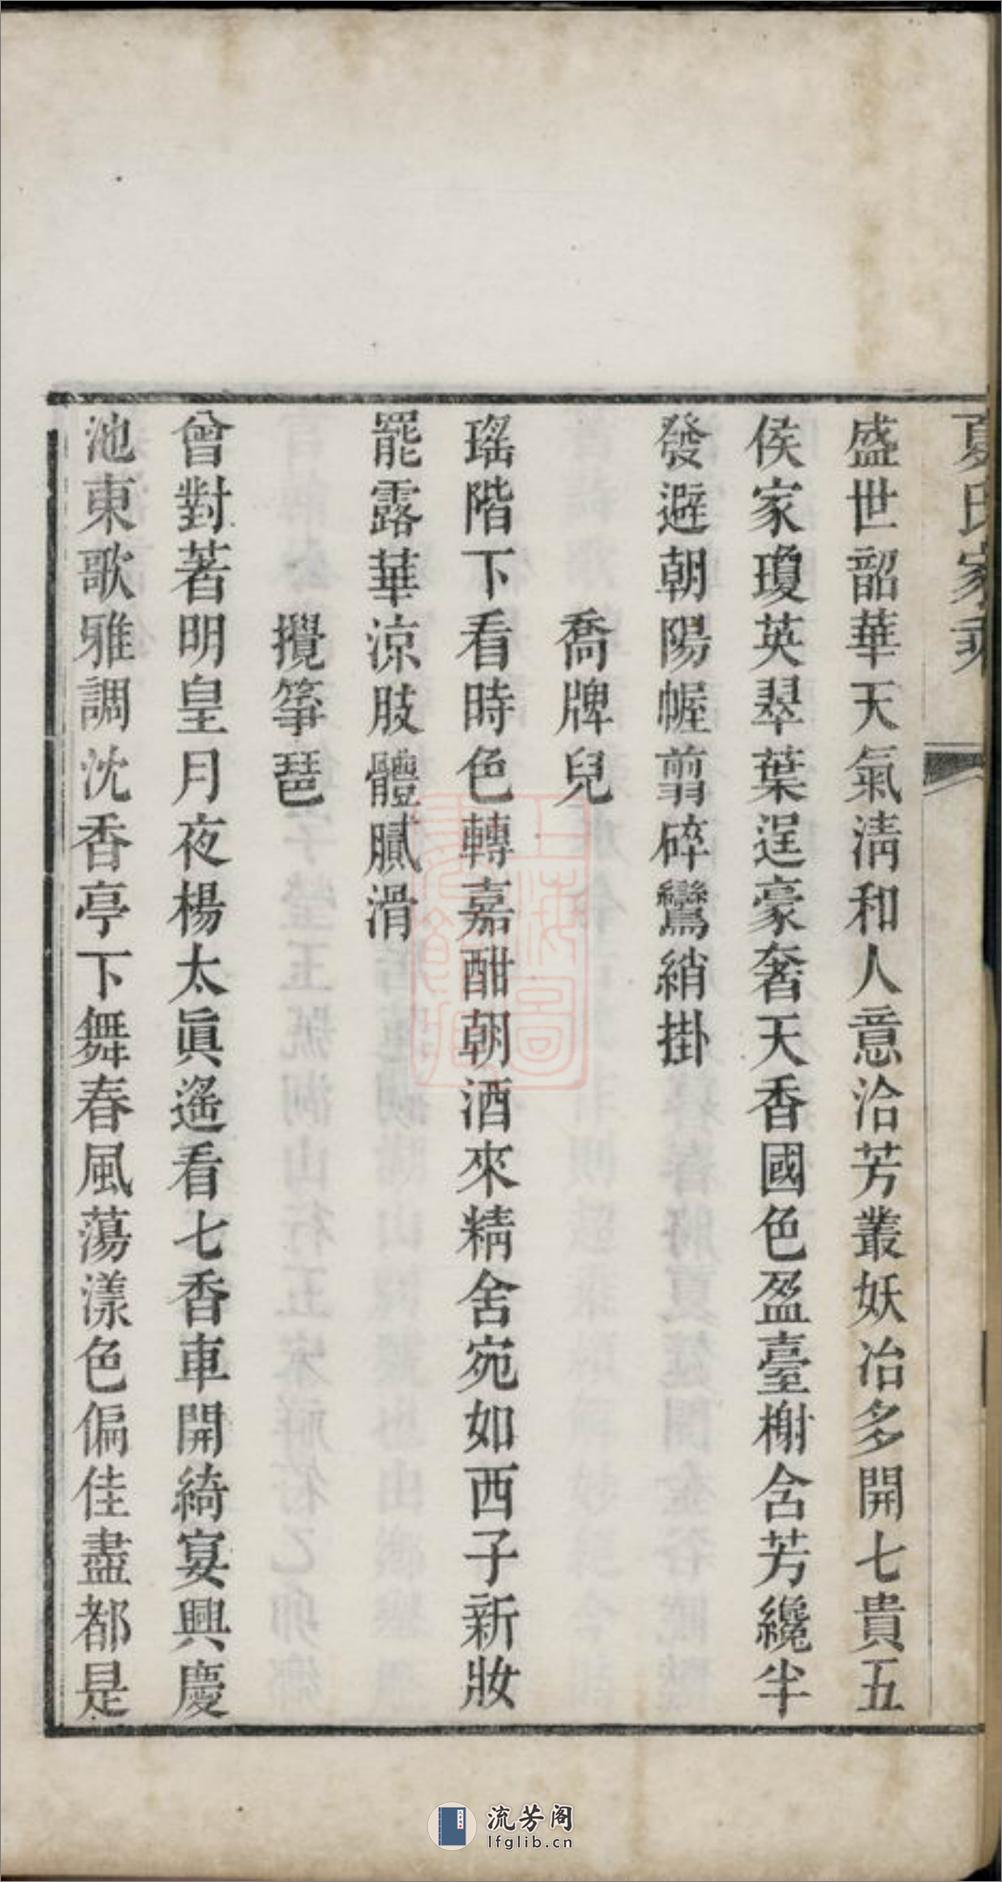 夏氏家乘
盛世韶華天氣淸和人意洽芳叢妖冶多開七貴五
侯家瓊英翠葉逞豪奢天香國色盈臺榭含芳纔半
發避朝陽幄翦碎鸞綃掛
喬牌兒
瑤階下看時色轉嘉酣朝酒來精舍宛如西子新妝
罷露華涼肢體膩滑
攪箏琶
曾對著明皇月夜楊太眞遙看七香車開綺宴興慶
池東歌雅調沈香亭下舞春風蕩漾色偏佳盡都是
流芳阁
lfglib.cn